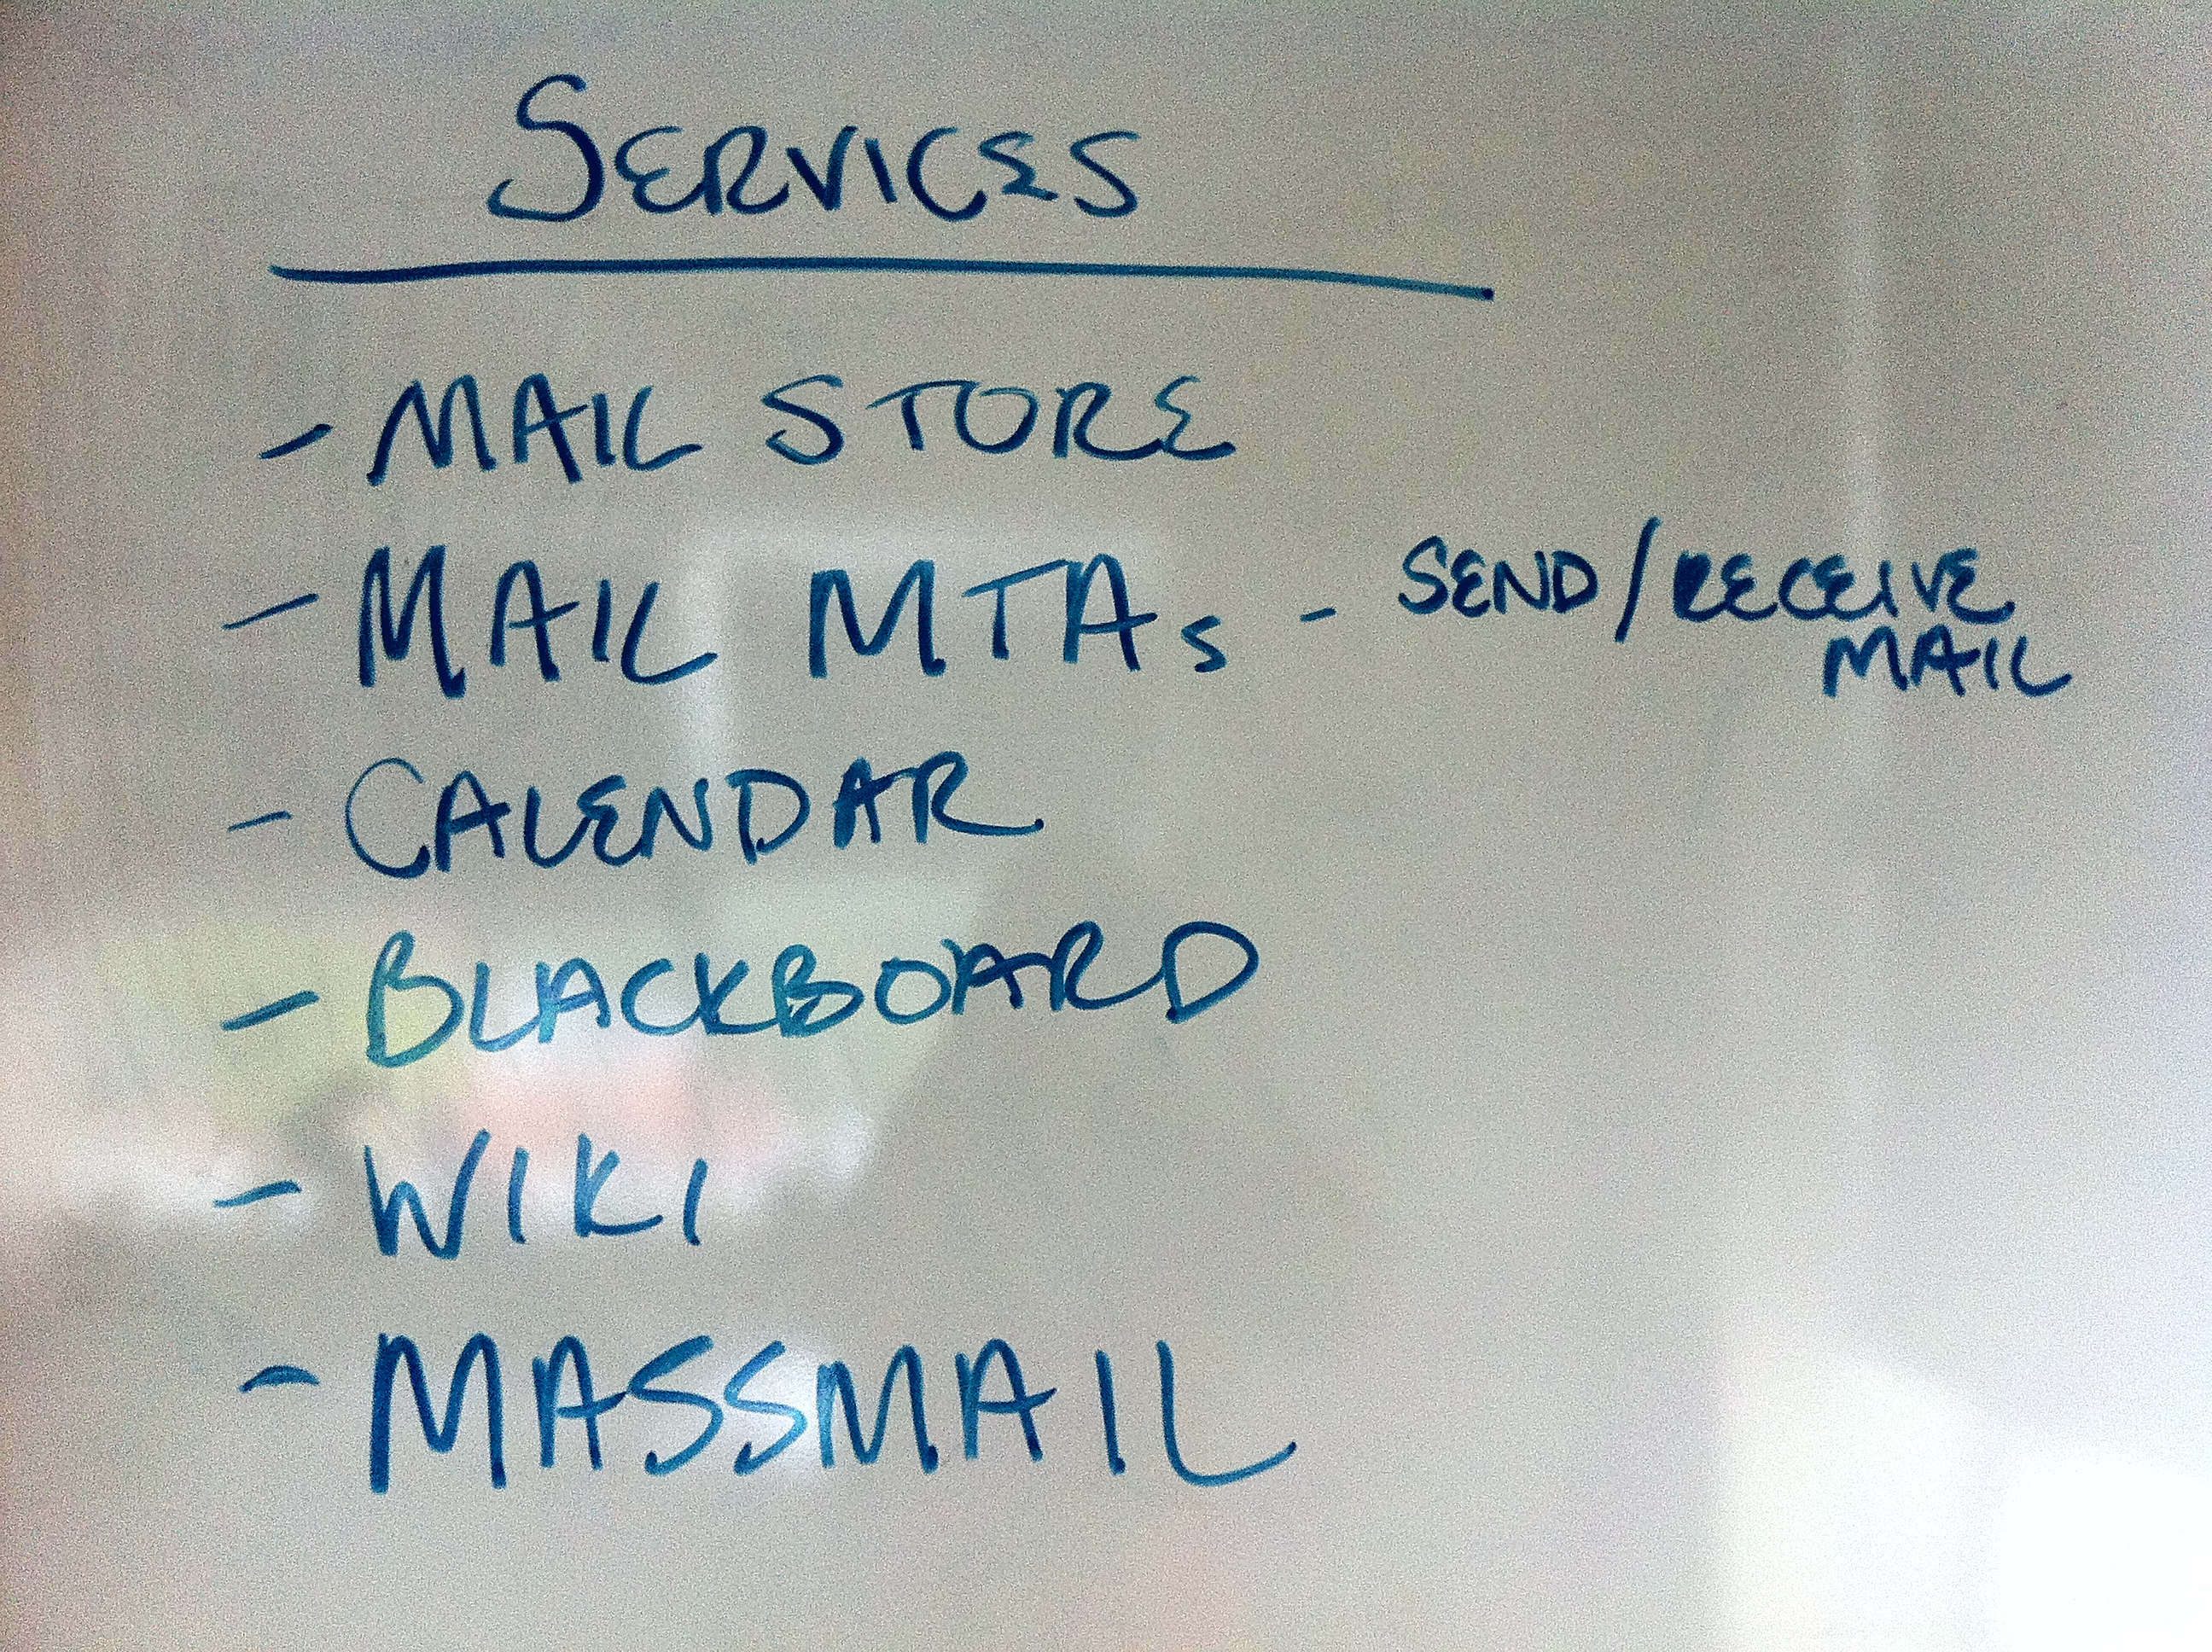 SERVICES
- MAIL STORE
- MAIL MTAs - SEND/RECEIVE
MAIL
- CALENDAR
- BLACKBOARD
- WIKI
- MASSMAIL